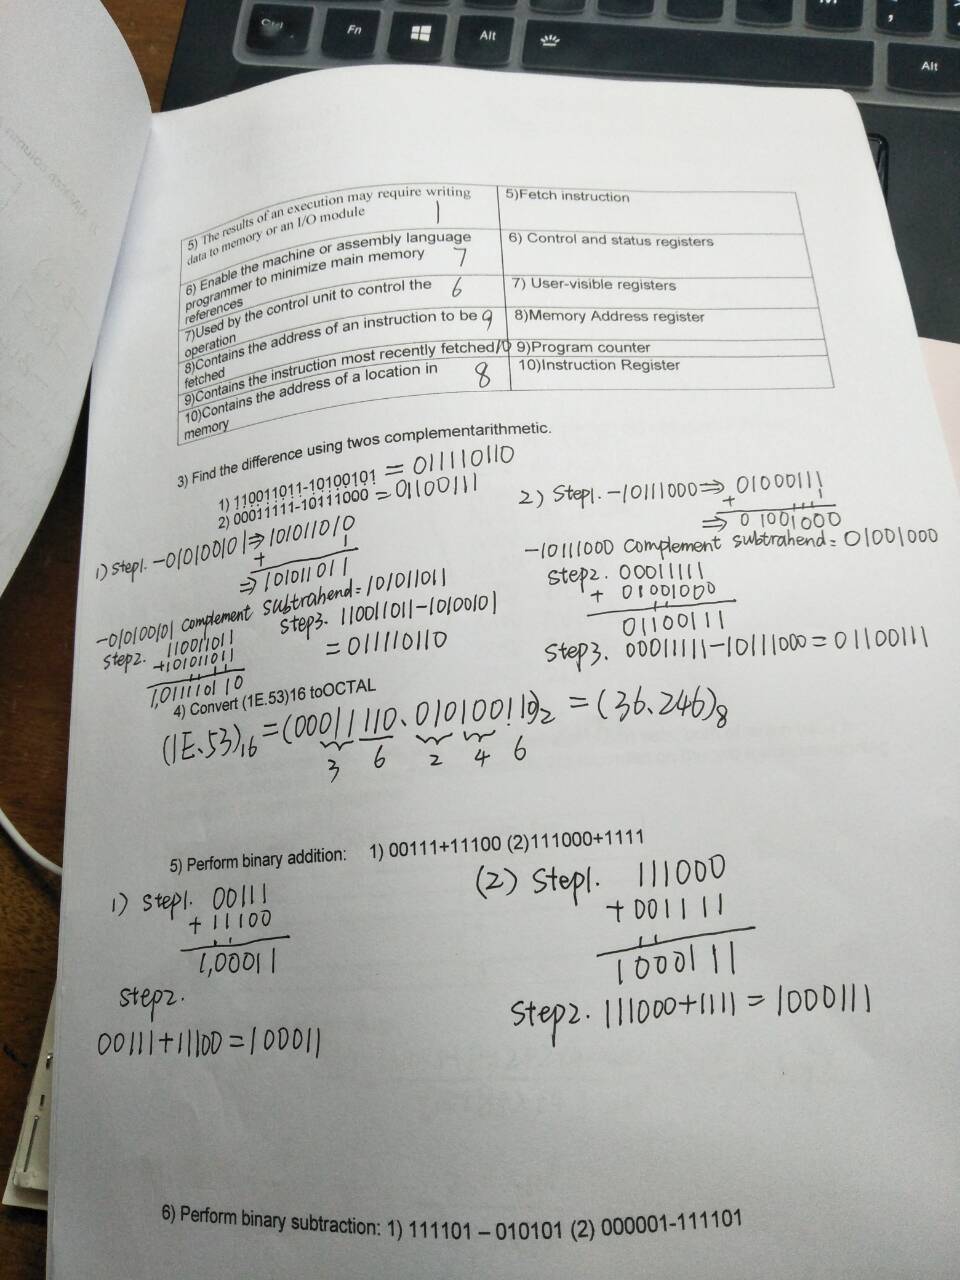 Ctrl
Fn
Alt
Alt
5) The results of an execution may require writing
data to memory or an I/O module
1
5)Fetch instruction
6) Enable the machine or assembly language
programmer to minimize main memory
references
7
6) Control and status registers
7)Used by the control unit to control the
operation
6
7) User-visible registers
8)Contains the address of an instruction to be
fetched
9
8)Memory Address register
9)Contains the instruction most recently fetched
10
9)Program counter
10)Contains the address of a location in
memory
8
10)Instruction Register
3) Find the difference using twos complementarithmetic.
1) 110011011-10100101 = 011110110
2) 00011111-10111000 = 01100111
1) Step1. -010100101⇒ 101011010
+ 1
⇒ 101011011
-010100101 complement subtrahend=101011011
Step2. 110011011
+101011011
1,011110110
Step3. 110011011-10100101
=011110110
2) Step1. -10111000⇒ 01000111
+ 1
⇒ 01001000
-10111000 complement subtrahend=01001000
Step2. 00011111
+ 01001000
01100111
Step3. 00011111-10111000=01100111
4) Convert (1E.53)16 toOCTAL
(1E.53)16=(00011110.010100110)2 =(36.246)8
3 6 2 4 6
5) Perform binary addition: 1) 00111+11100 (2)111000+1111
1) Step1. 00111
+ 11100
1,00011
Step2.
00111+11100=100011
(2) Step1. 111000
+001111
1000111
Step2. 111000+1111=1000111
6) Perform binary subtraction: 1) 111101 – 010101 (2) 000001-111101